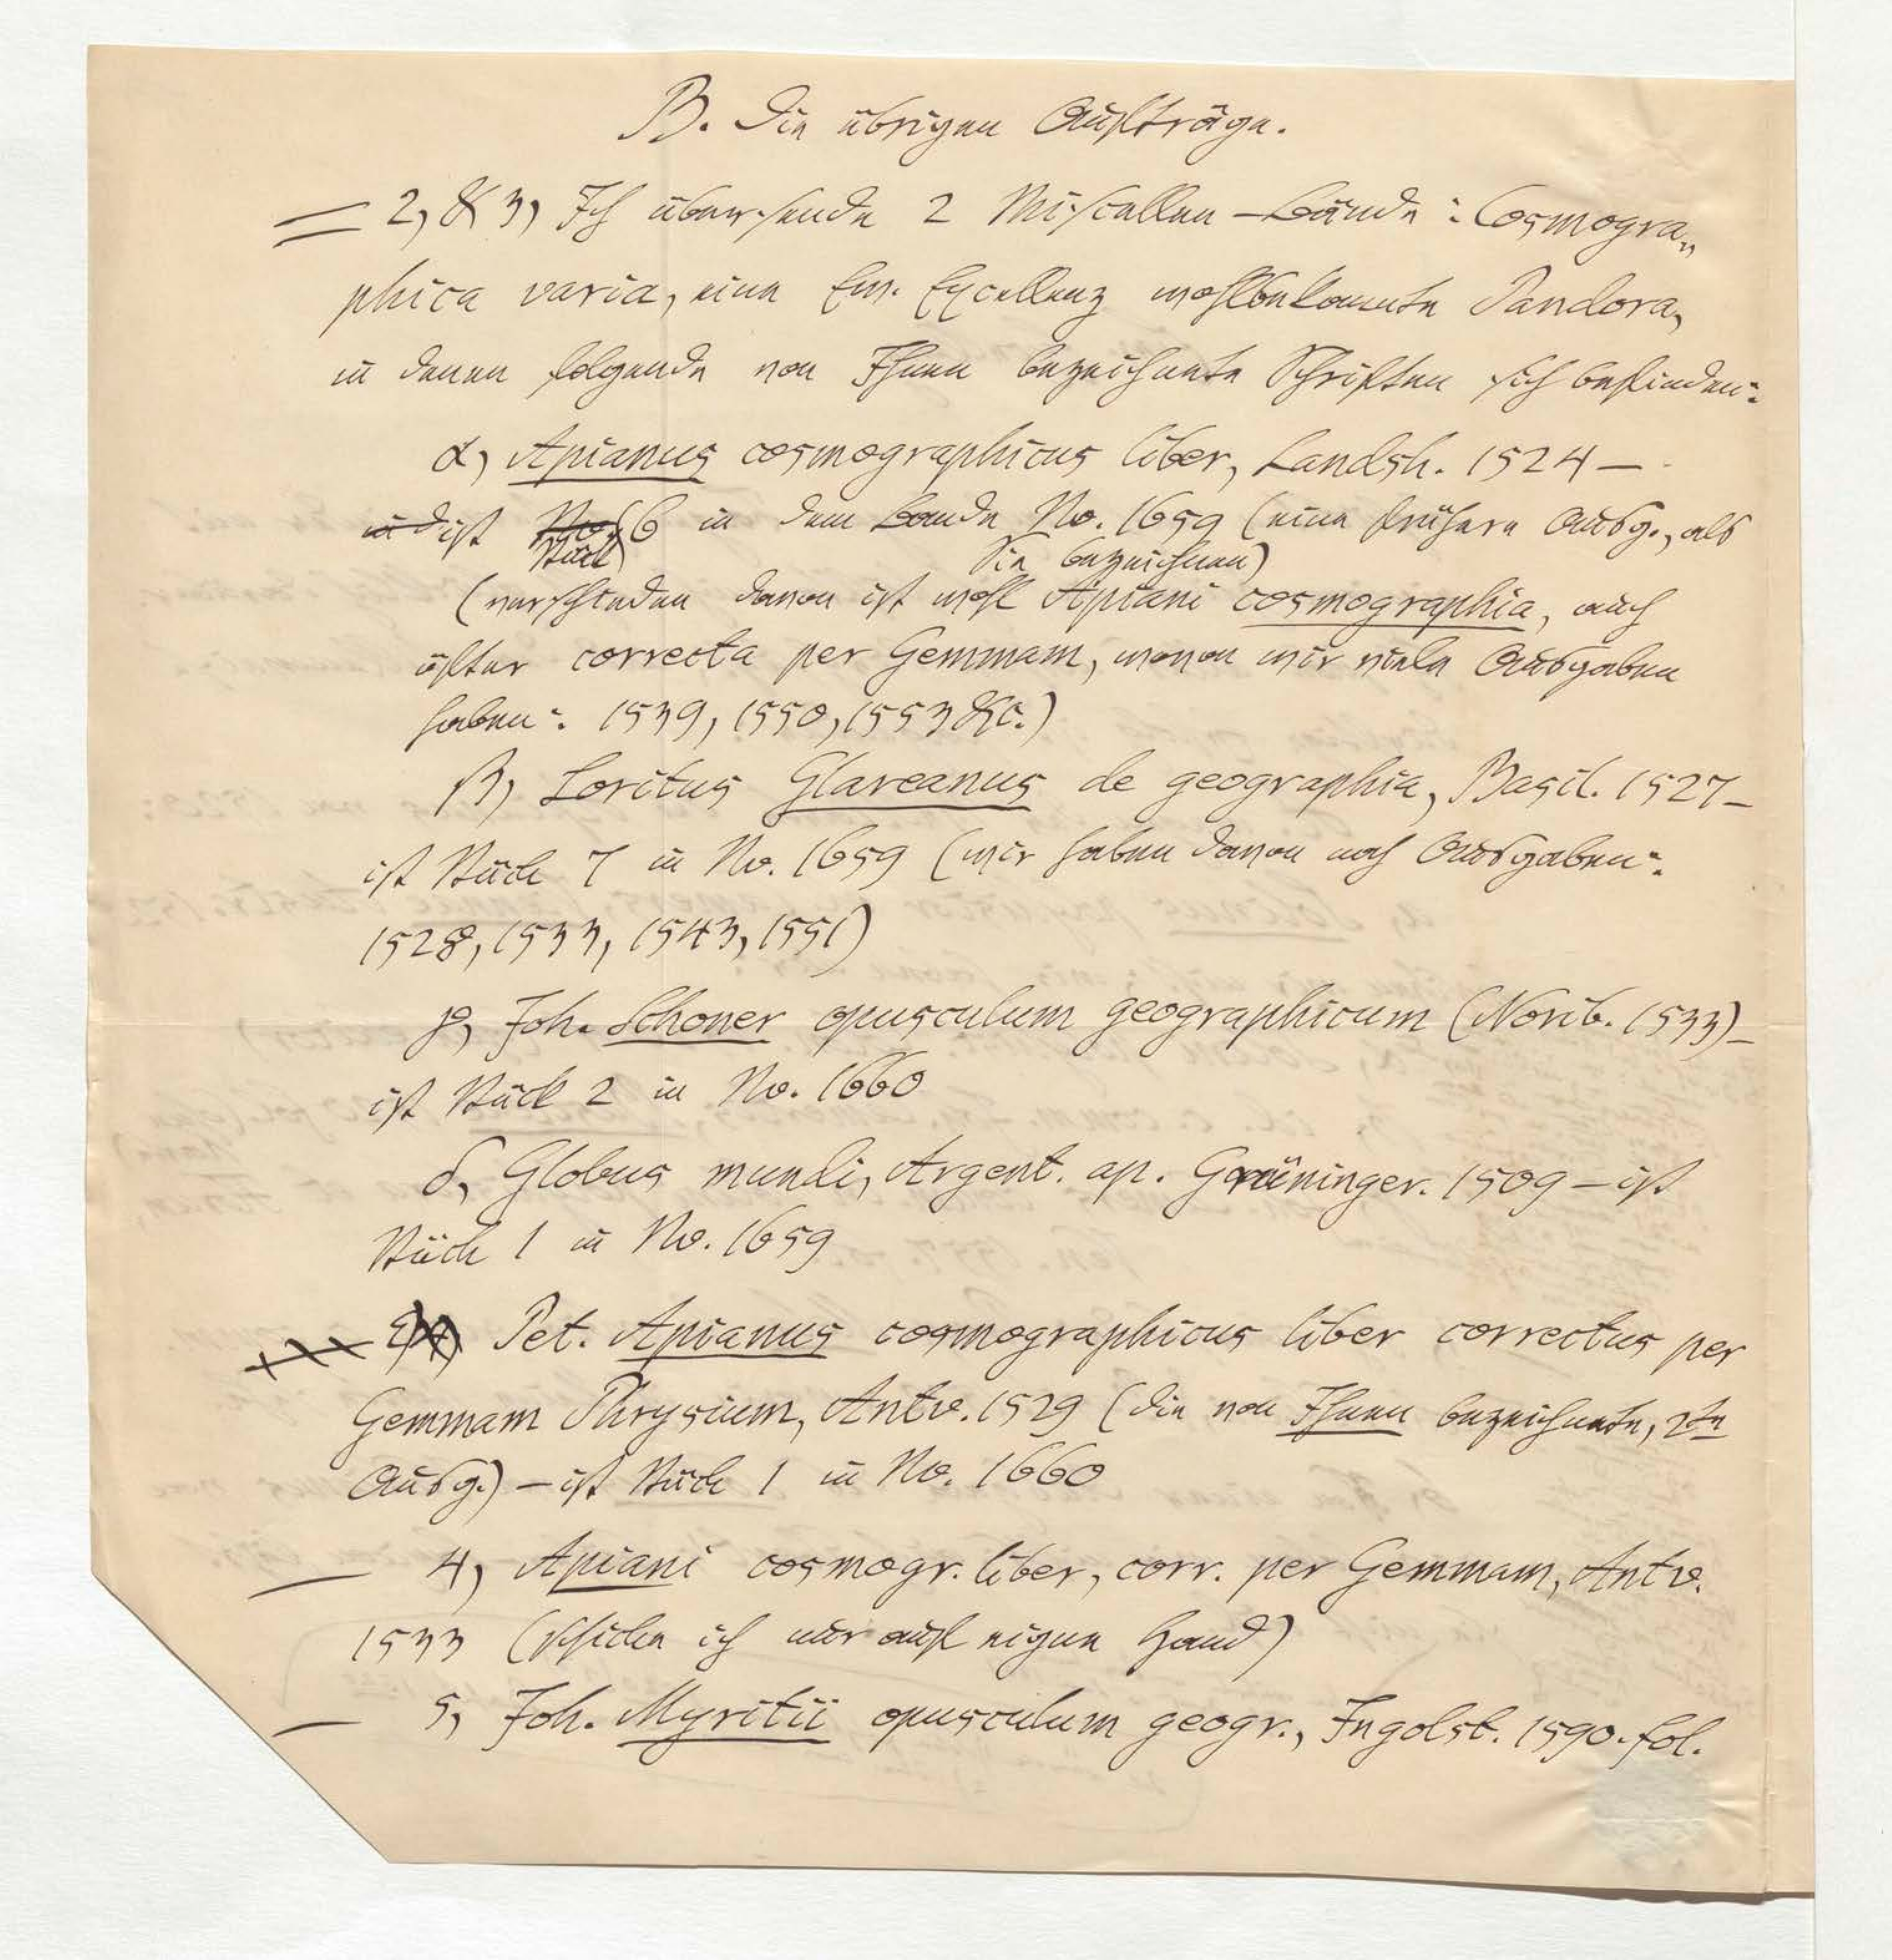 B. Die übrigen Aufträge.
2, & 3, Ich übersende 2 Miscellen-Bände: Cosmogra„
phica varia, eine Ew. Excellenz wohlbekannte Pandora,
in denen folgende von Ihnen bezeichnete Schriften sich befinden:
α, Apianus cosmographicus liber, Landsh. 1524 –
ist Stück 6 in dem Bande No. 1659 (eine frühere Ausg., als
Sie bezeichnen)
(verschieden davon ist wohl Apiani cosmographia, auch
öfter correcta per Gemmam, wovon wir viele Ausgaben
haben: 1539, 1550, 1553 &c.)
β, Loritus Glareanus de geographia, Basil. 1527 –
ist Stück 7 in No. 1659 (wir haben davon noch Ausgaben:
1528, 1533, 1543, 1551)
γ, Joh. Schoner opusculum geographicum (Norib. 1533) –
ist Stück 2 in No. 1660
δ, Globus mundi, Argent. ap. Grüninger. 1509 – ist
Stück 1 in No. 1659
ε, Pet. Apianus cosmographicus liber correctus per
Gemmam Phrysium, Antv. 1529 (die von Ihnen bezeichnete, 2te
Ausg.) – ist Stück 1 in No. 1660
4, Apiani cosmogr. liber, corr. per Gemmam, Antv.
1533 (schicke ich nur auf eigne Hand)
5, Joh. Myritii opusculum geogr., Ingolst. 1590. fol.